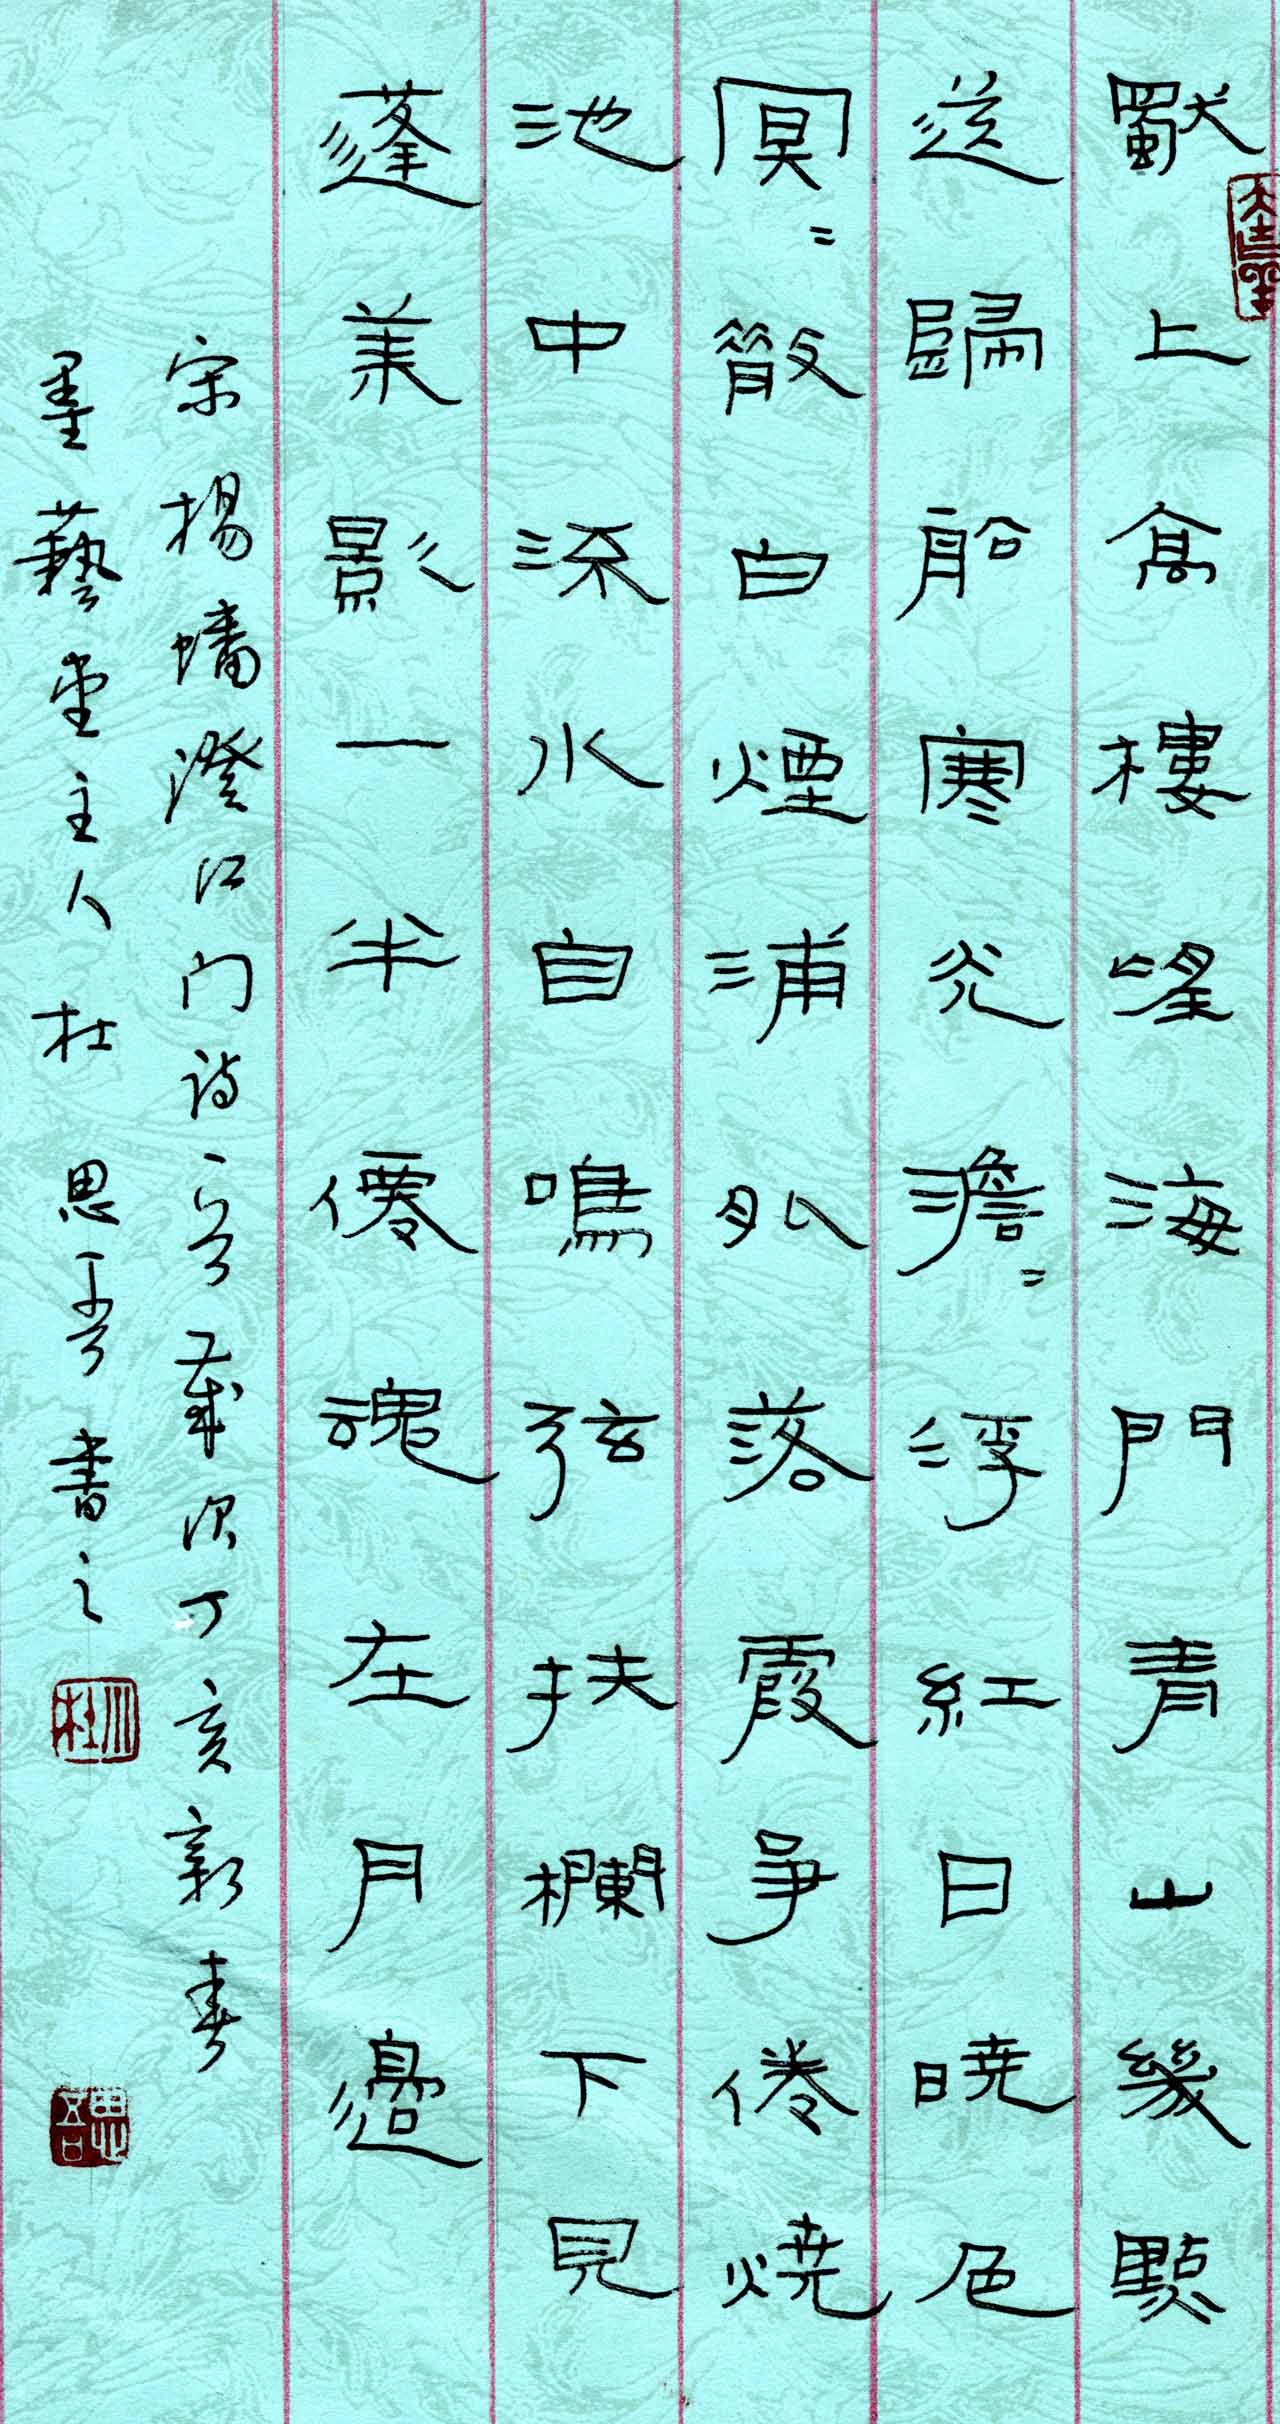 獨上高樓望海門青山幾點
送歸船寒光澹〻浮紅日曉色
冥〻散白煙浦外落霞爭倦燒
池中流水自鳴弦扶欄下見
蓬萊影一半僊魂在月邊
宋楊蟠澄江门诗一首歲次丁亥新春
墨藝堂主人杜思吾書之